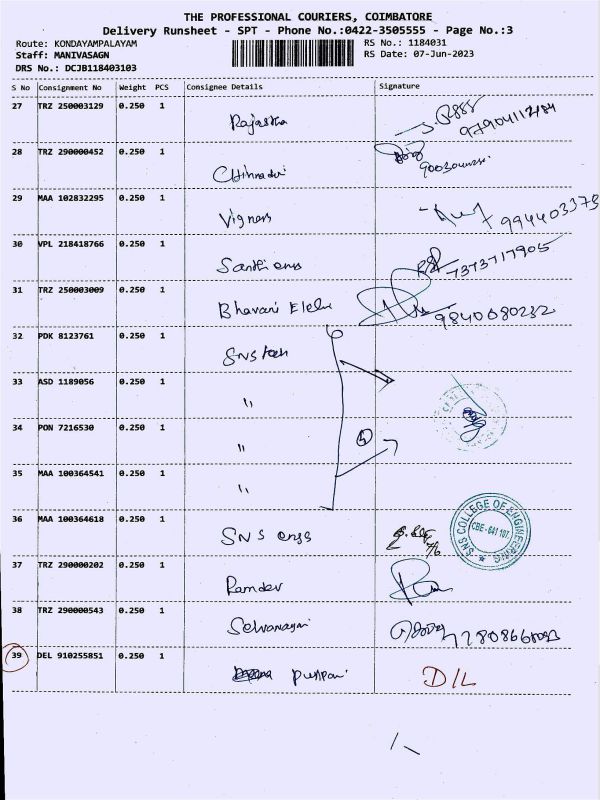 THE PROFESSIONAL COURIERS, COIMBATORE
Delivery Runsheet - SPT - Phone No.:0422-3505555 - Page No.:3
Route: KONDAYAMPALAYAM RS No.: 1184031
Staff: MANIVASAGN RS Date: 07-Jun-2023
DRS No.: DCJB118403103
S No Consignment No Weight PCS Consignee Details Signature
27 TRZ 250003129 0.250 1
28 TRZ 290000452 0.250 1
29 MAA 102832295 0.250 1 Vignesh
30 VPL 218418766 0.250 1 Santhi 7373717905
31 TRZ 250003009 0.250 1 Bhavani 9840080232
32 PDK 8123761 0.250 1 SNS
33 ASD 1189056 0.250 1 "
34 PON 7216530 0.250 1 "
35 MAA 100364541 0.250 1 "
36 MAA 100364618 0.250 1 SNS engg
SNS COLLEGE OF ENGINEERING
CBE - 641 107
37 TRZ 290000202 0.250 1 Ramdev
38 TRZ 290000543 0.250 1
39 DEL 910255851 0.250 1 D/L